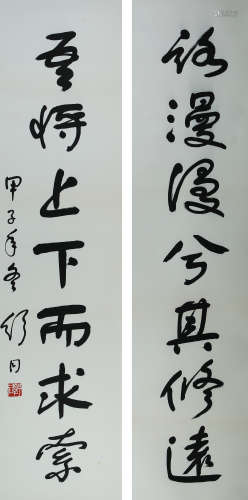 路漫漫兮其修遠
吾將上下而求索
甲子年冬 舒同